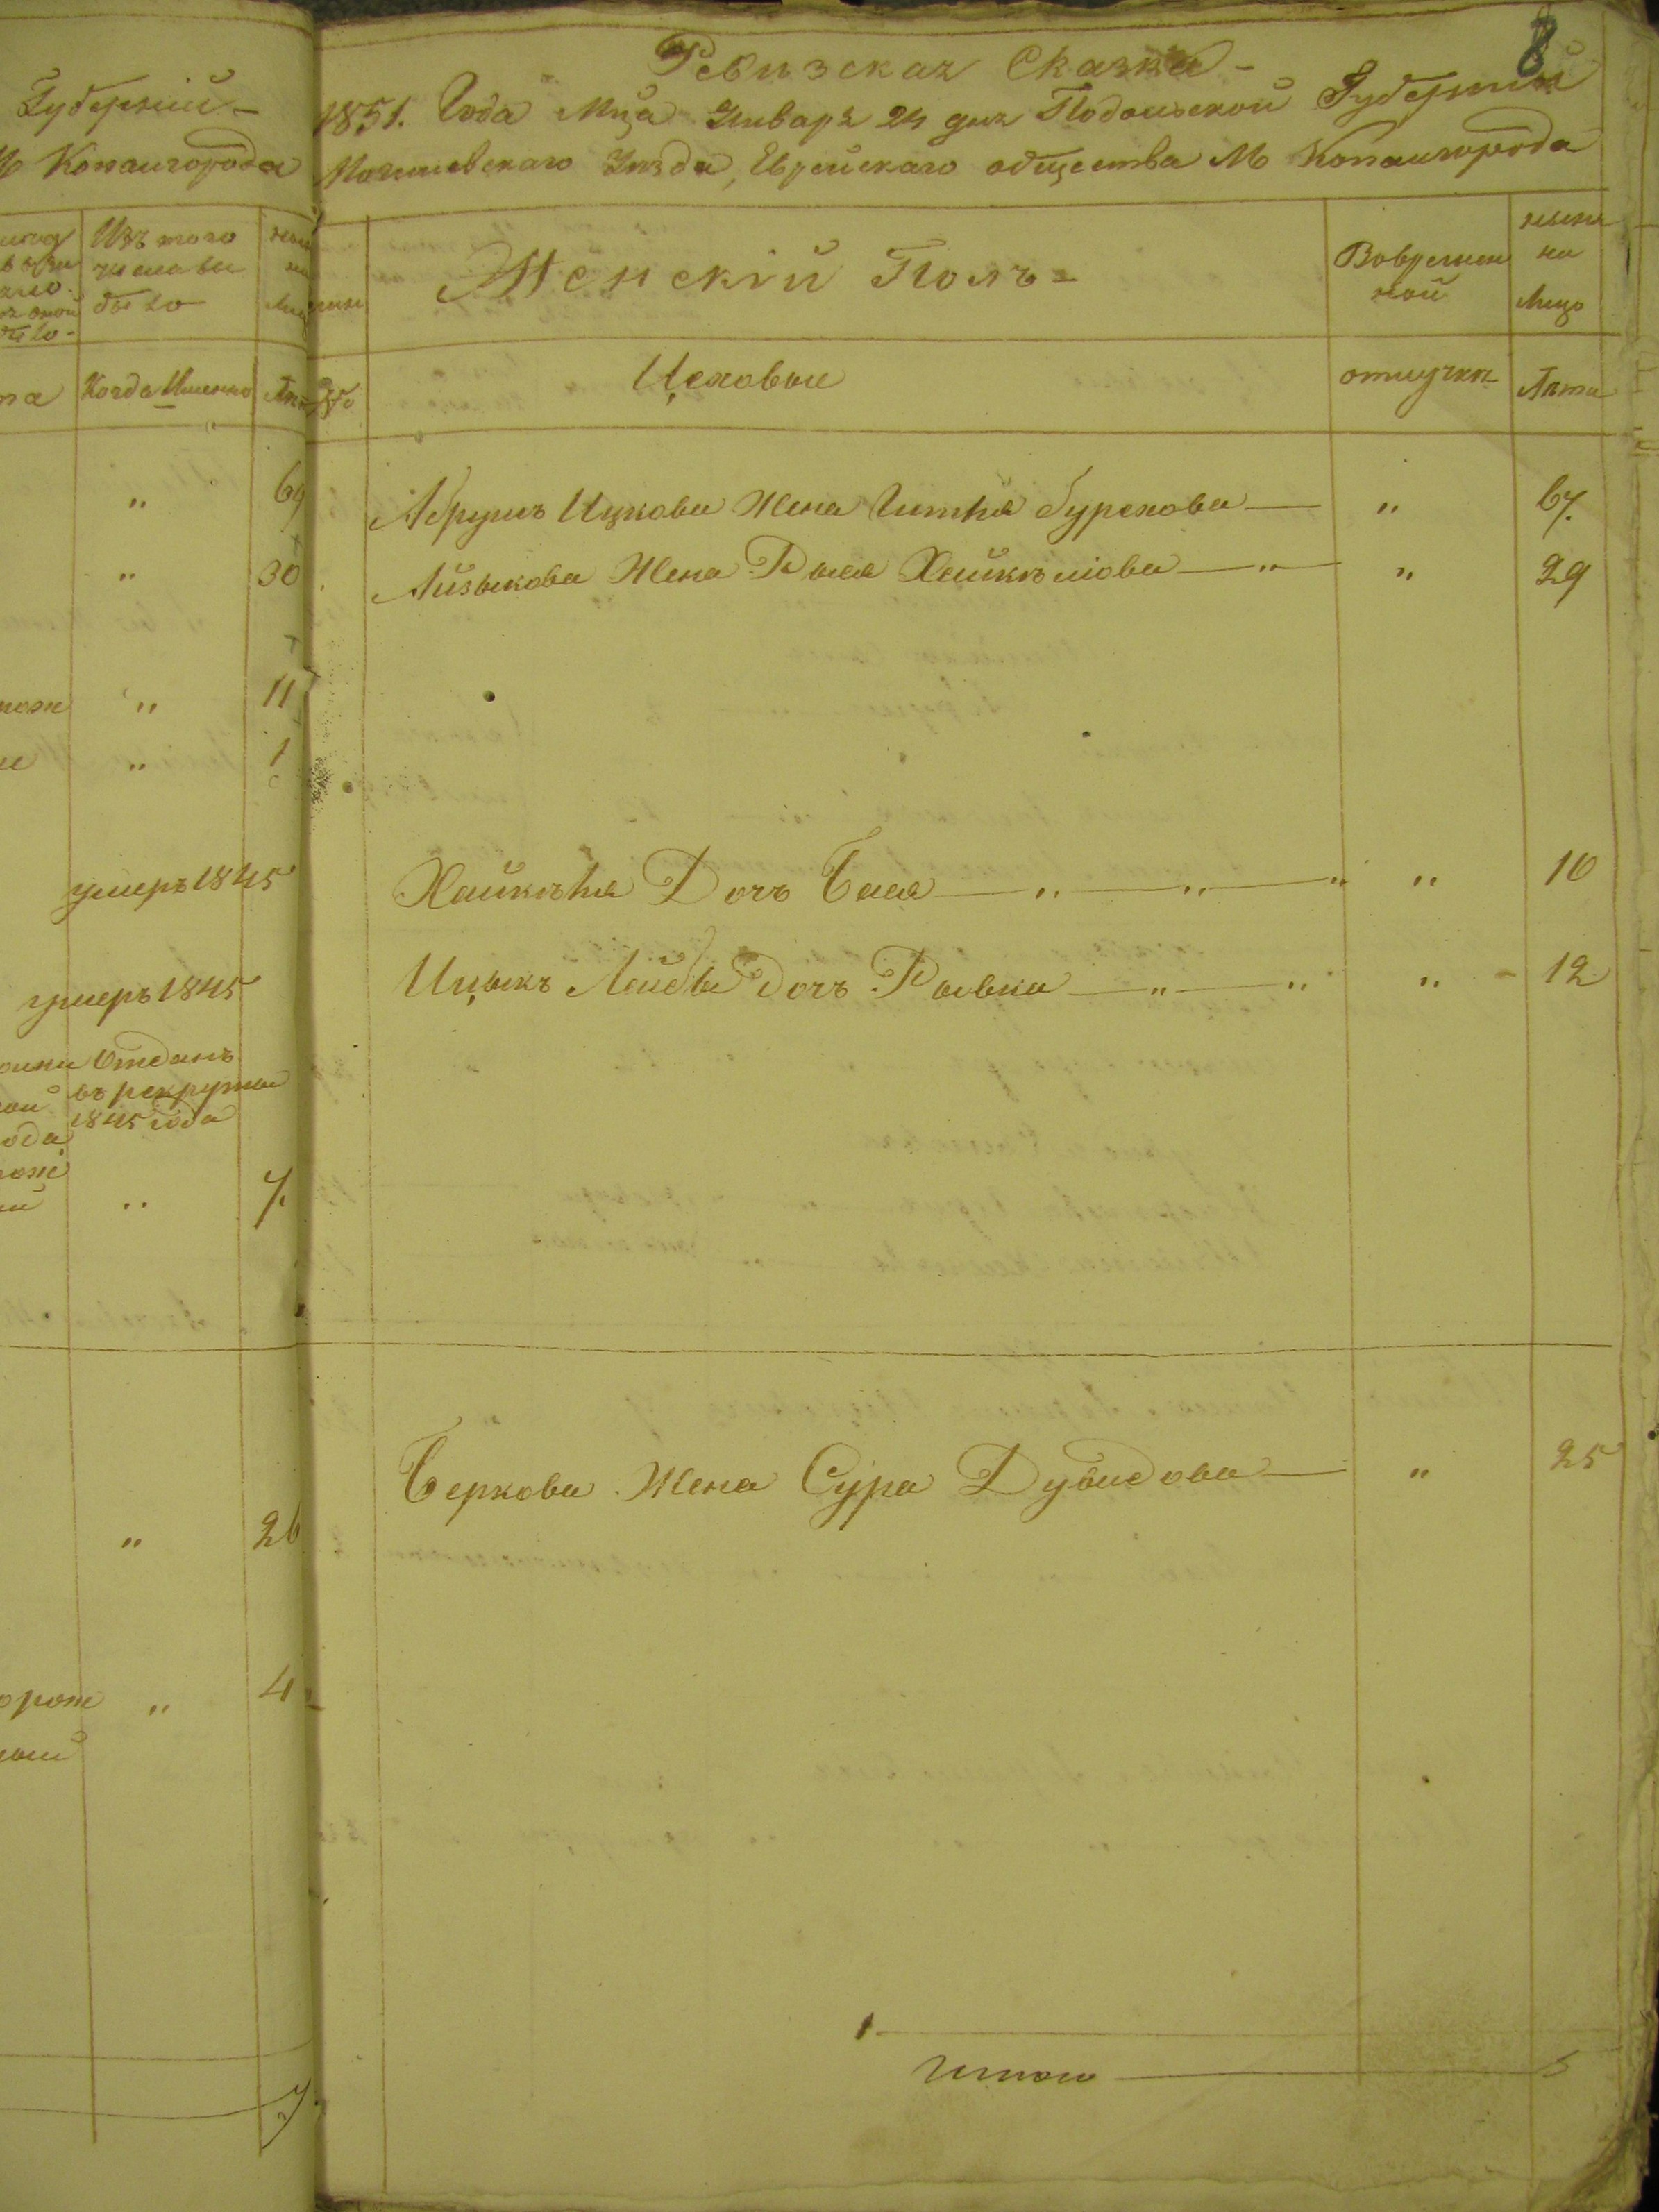 Губерніи
М Копаигорода
Изъ того
числа вы
было
Когда Именно
Лѣта
" 69
" 30
" 11
" 1
умеръ 1845
умеръ 1845
Отданъ
въ рекруты
1845 года
" 7.
" 26
" 4
8
Ревизская Сказка
1851. Года Мца Января 24 дня Подольской Губерніи
Могилевскаго Уезда, Еврейскаго общества М Копаигорода
Женскій Полъ
Вовремен
ной
ныне
на
лицо
Цеховые
отлучки
Лѣта
Абрумъ Ицкова Жена Гитля Бурехова " 67.
Айзыкова Жена Рыся " 29
Дочь Бася " 10
Ицыкъ Лейбы Дочь Рывка " 12
Беркова Жена Сура Дувидова " 25
Итого 5